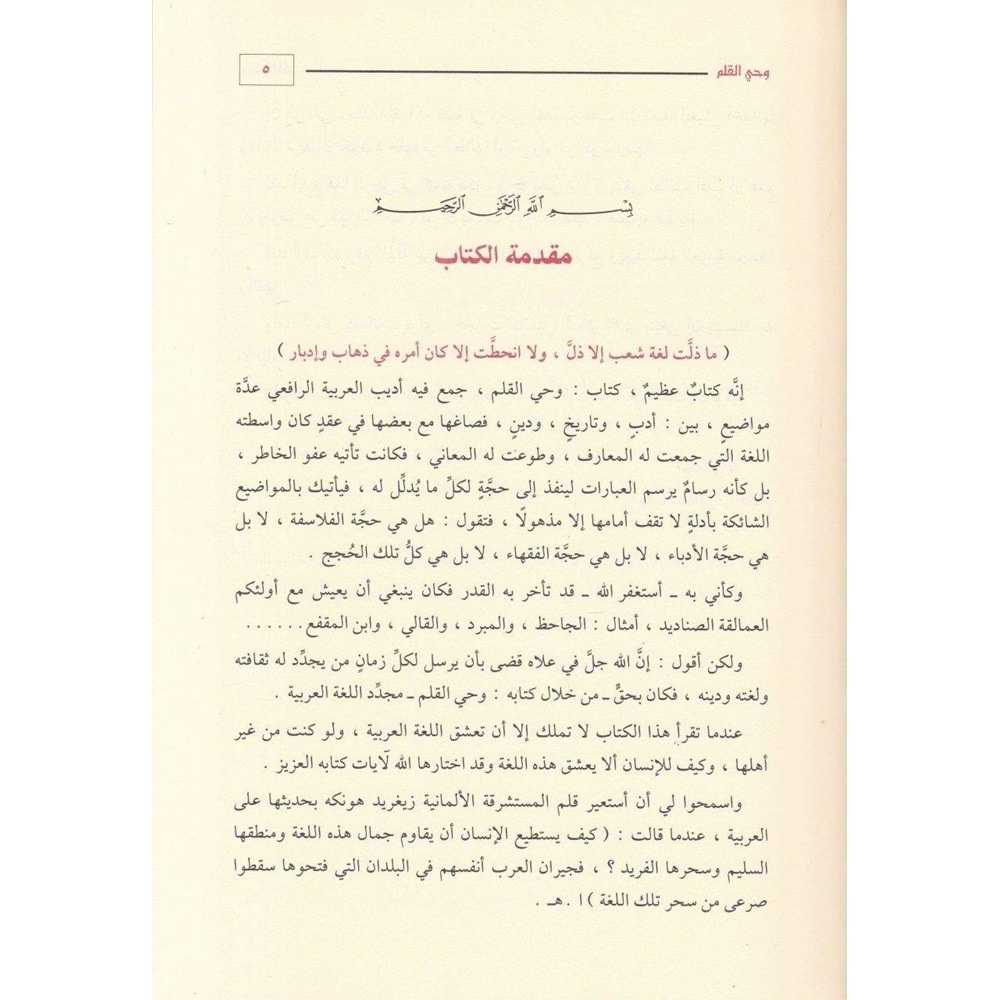 وحي القلم
٥
بسم الله الرحمن الرحيم
مقدمة الكتاب
( ما ذلَّت لغة شعب إلا ذلَّ ، ولا انحطَّت إلا كان أمره في ذهاب وإدبار )
إنَّه كتابٌ عظيمٌ ، كتاب : وحي القلم ، جمع فيه أديب العربية الرافعي عدَّة
مواضيعٍ ، بين : أدبٍ ، وتاريخٍ ، ودينٍ ، فصاغها مع بعضها في عقدٍ كان واسطته
اللغة التي جمعت له المعارف ، وطوعت له المعاني ، فكانت تأتيه عفو الخاطر ،
بل كأنه رسامٌ يرسم العبارات لينفذ إلى حجَّةٍ لكلِّ ما يُدلِّل له ، فيأتيك بالمواضيع
الشائكة بأدلةٍ لا تقف أمامها إلا مذهولًا ، فتقول : هل هي حجَّة الفلاسفة ، لا بل
هي حجَّة الأدباء ، لا بل هي حجَّة الفقهاء ، لا بل هي كلُّ تلك الحُجج .
وكأني به ـ أستغفر الله ـ قد تأخر به القدر فكان ينبغي أن يعيش مع أولئكم
العمالقة الصناديد ، أمثال : الجاحظ ، والمبرد ، والقالي ، وابن المقفع ......
ولكن أقول : إنَّ الله جلَّ في علاه قضى بأن يرسل لكلِّ زمانٍ من يجدِّد له ثقافته
ولغته ودينه ، فكان بحقٍّ ـ من خلال كتابه : وحي القلم ـ مجدِّد اللغة العربية .
عندما تقرأ هذا الكتاب لا تملك إلا أن تعشق اللغة العربية ، ولو كنت من غير
أهلها ، وكيف للإنسان ألا يعشق هذه اللغة وقد اختارها الله لآيات كتابه العزيز .
واسمحوا لي أن أستعير قلم المستشرقة الألمانية زيغريد هونكه بحديثها على
العربية ، عندما قالت : ( كيف يستطيع الإنسان أن يقاوم جمال هذه اللغة ومنطقها
السليم وسحرها الفريد ؟ ، فجيران العرب أنفسهم في البلدان التي فتحوها سقطوا
صرعى من سحر تلك اللغة ) ا .هـ .